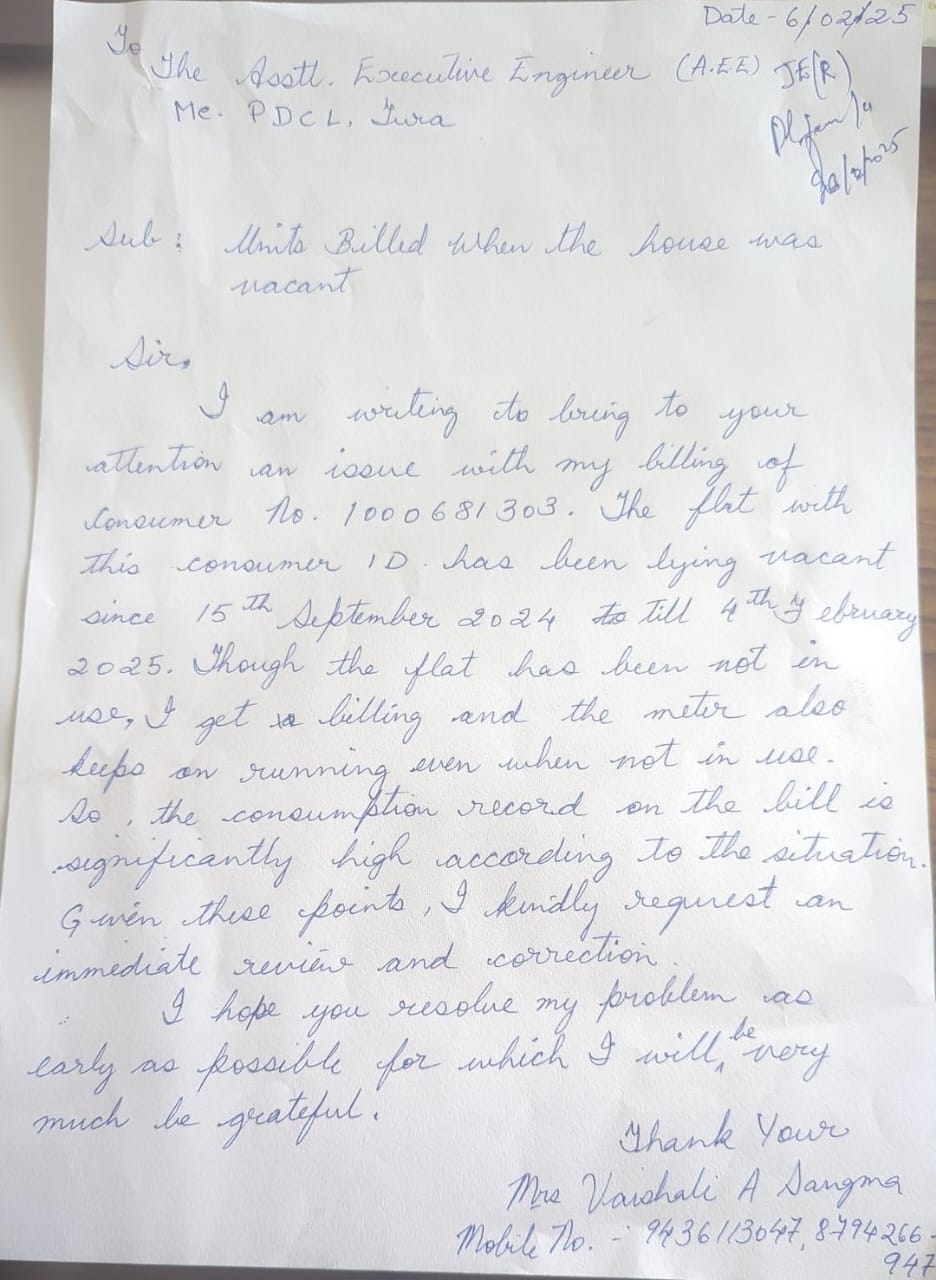 Date - 6/02/25
To
The Asstt. Executive Engineer (A.E.E)
JE(R)
Me. PDCL, Tura
Sub : Units Billed when the house was
vacant
Sir,
I am writing to bring to your
attention an issue with my billing of
Consumer No. 1000681303. The flat with
this consumer ID. has been lying vacant
since 15th September 2024 to till 4th February
2025. Though the flat has been not in
use, I get billing and the meter also
keeps on running even when not in use.
So, the consumption record on the bill is
significantly high according to the situation.
Given these points, I kindly request an
immediate review and correction.
I hope you resolve my problem as
early as possible for which I will be very
much be grateful.
Thank Your
Mrs Vaishali A Sangma
Mobile No. :- 9436113047, 8794266-
947